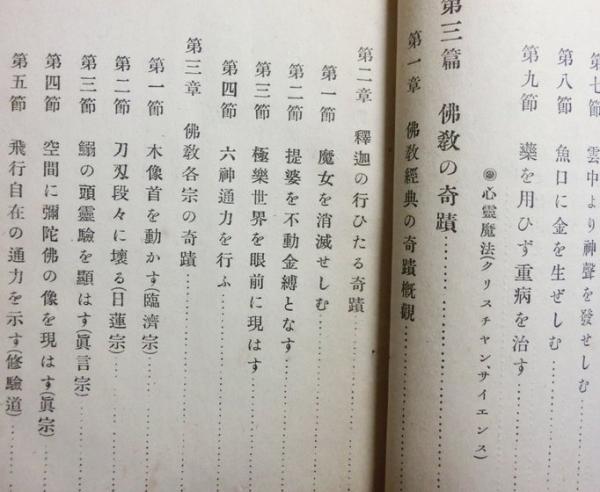 第七節 雲中より神聲を發せしむ
第八節 魚口に金を生ぜしむ
第九節 藥を用ひず重病を治す
◎心靈魔法(クリスチャン、サイエンス)
第三篇 佛敎の奇蹟
第一章 佛敎經典の奇蹟槪觀
第二章 釋迦の行ひたる奇蹟
第一節 魔女を消滅せしむ
第二節 提婆を不動金縛となす
第三節 極樂世界を眼前に現はす
第四節 六神通力を行ふ
第三章 佛敎各宗の奇蹟
第一節 木像首を動かす(臨濟宗)
第二節 刀刃段々に壞る(日蓮宗)
第三節 鰯の頭靈驗を顯はす(眞言宗)
第四節 空間に彌陀佛の像を現はす(眞宗)
第五節 飛行自在の通力を示す(修驗道)